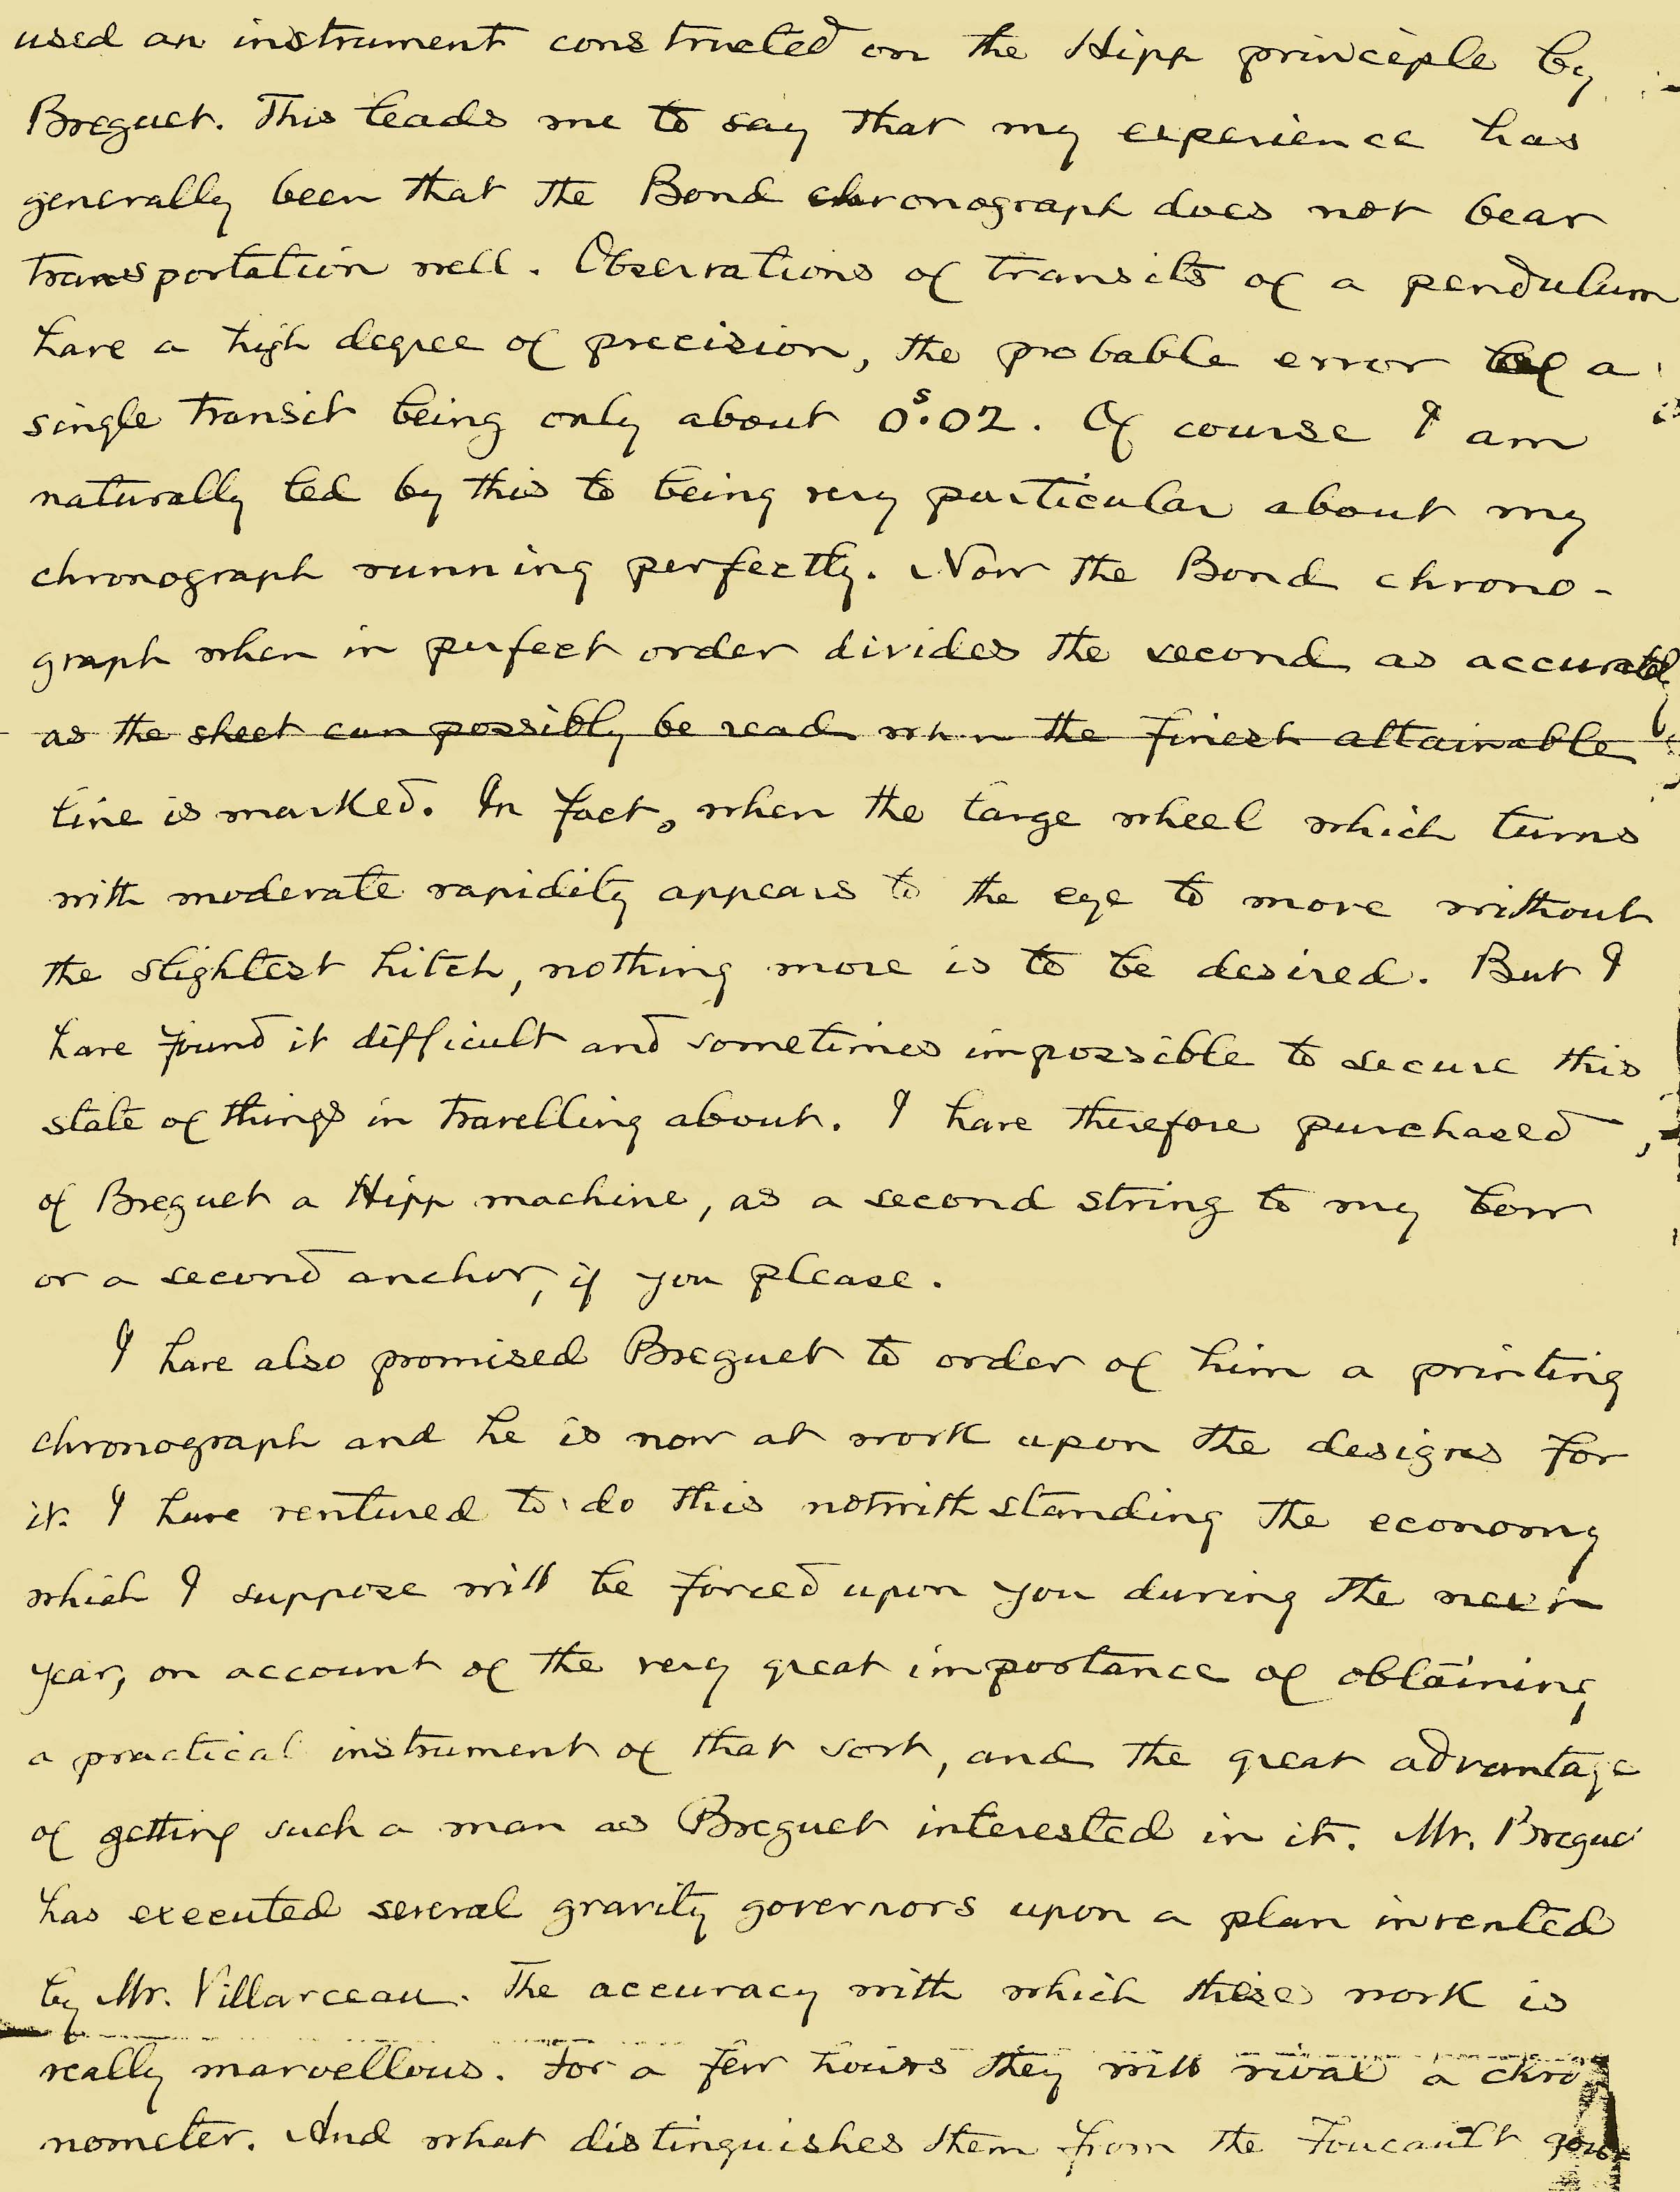 used an instrument constructed on the Hipp principle by
Breguet. This leads me to say that my experience has
generally been that the Bond chronograph does not bear
transportation well. Observations of transits of a pendulum
have a high degree of precision, the probable error of a
single transit being only about 0ˢ.02. Of course I am
naturally led by this to being very particular about my
chronograph running perfectly. Now the Bond chrono-
graph when in perfect order divides the second as accurately
as the sheet can possibly be read when the finest attainable
line is marked. In fact, when the large wheel which turns
with moderate rapidity appears to the eye to move without
the slightest hitch, nothing more is to be desired. But I
have found it difficult and sometimes impossible to secure this
state of things in travelling about. I have therefore purchased
of Breguet a Hipp machine, as a second string to my bow
or a second anchor, if you please.
I have also promised Breguet to order of him a printing
chronograph and he is now at work upon the designs for
it. I have ventured to do this notwithstanding the economy
which I suppose will be forced upon you during the next
year, on account of the very great importance of obtaining
a practical instrument of that sort, and the great advantage
of getting such a man as Breguet interested in it. Mr. Bregue
has executed several gravity governors upon a plan invented
by Mr. Villarceau. The accuracy with which these work is
really marvellous. For a few hours they will rival a chro
nometer. And what distinguishes them from the Foucault